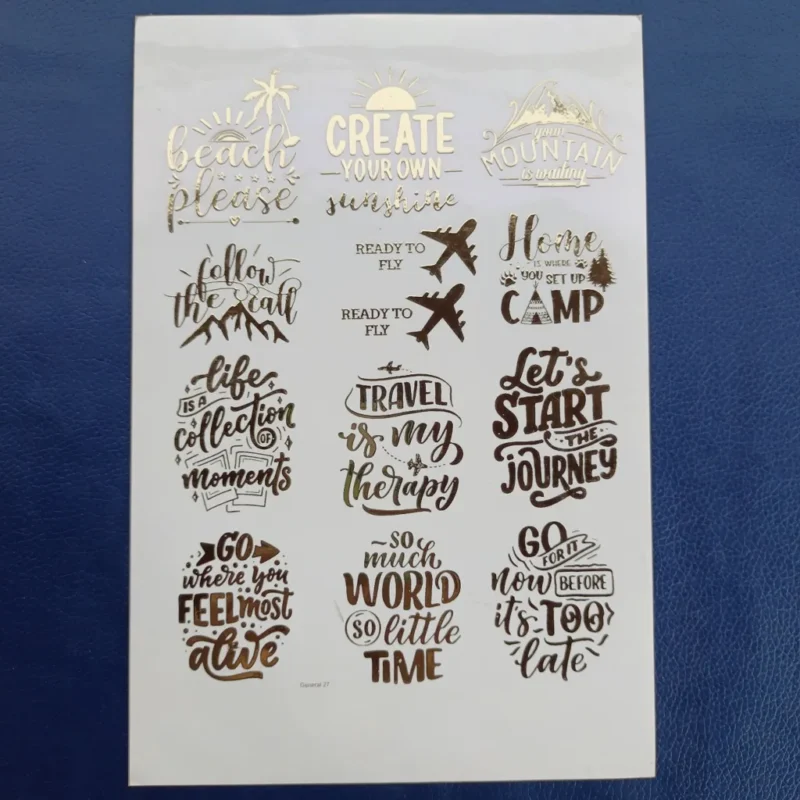 beach
please
CREATE
YOUR OWN
sunshine
your
MOUNTAIN
is waiting
follow
the call
READY TO
FLY
READY TO
FLY
Home
IS WHERE
YOU SET UP
CAMP
life
IS A
collection
OF
moments
TRAVEL
is my
therapy
Let's
START
THE
JOURNEY
GO
where you
FEEL most
alive
SO
much
WORLD
SO little
TIME
GO
FOR IT
now BEFORE
it's TOO
late
General 27